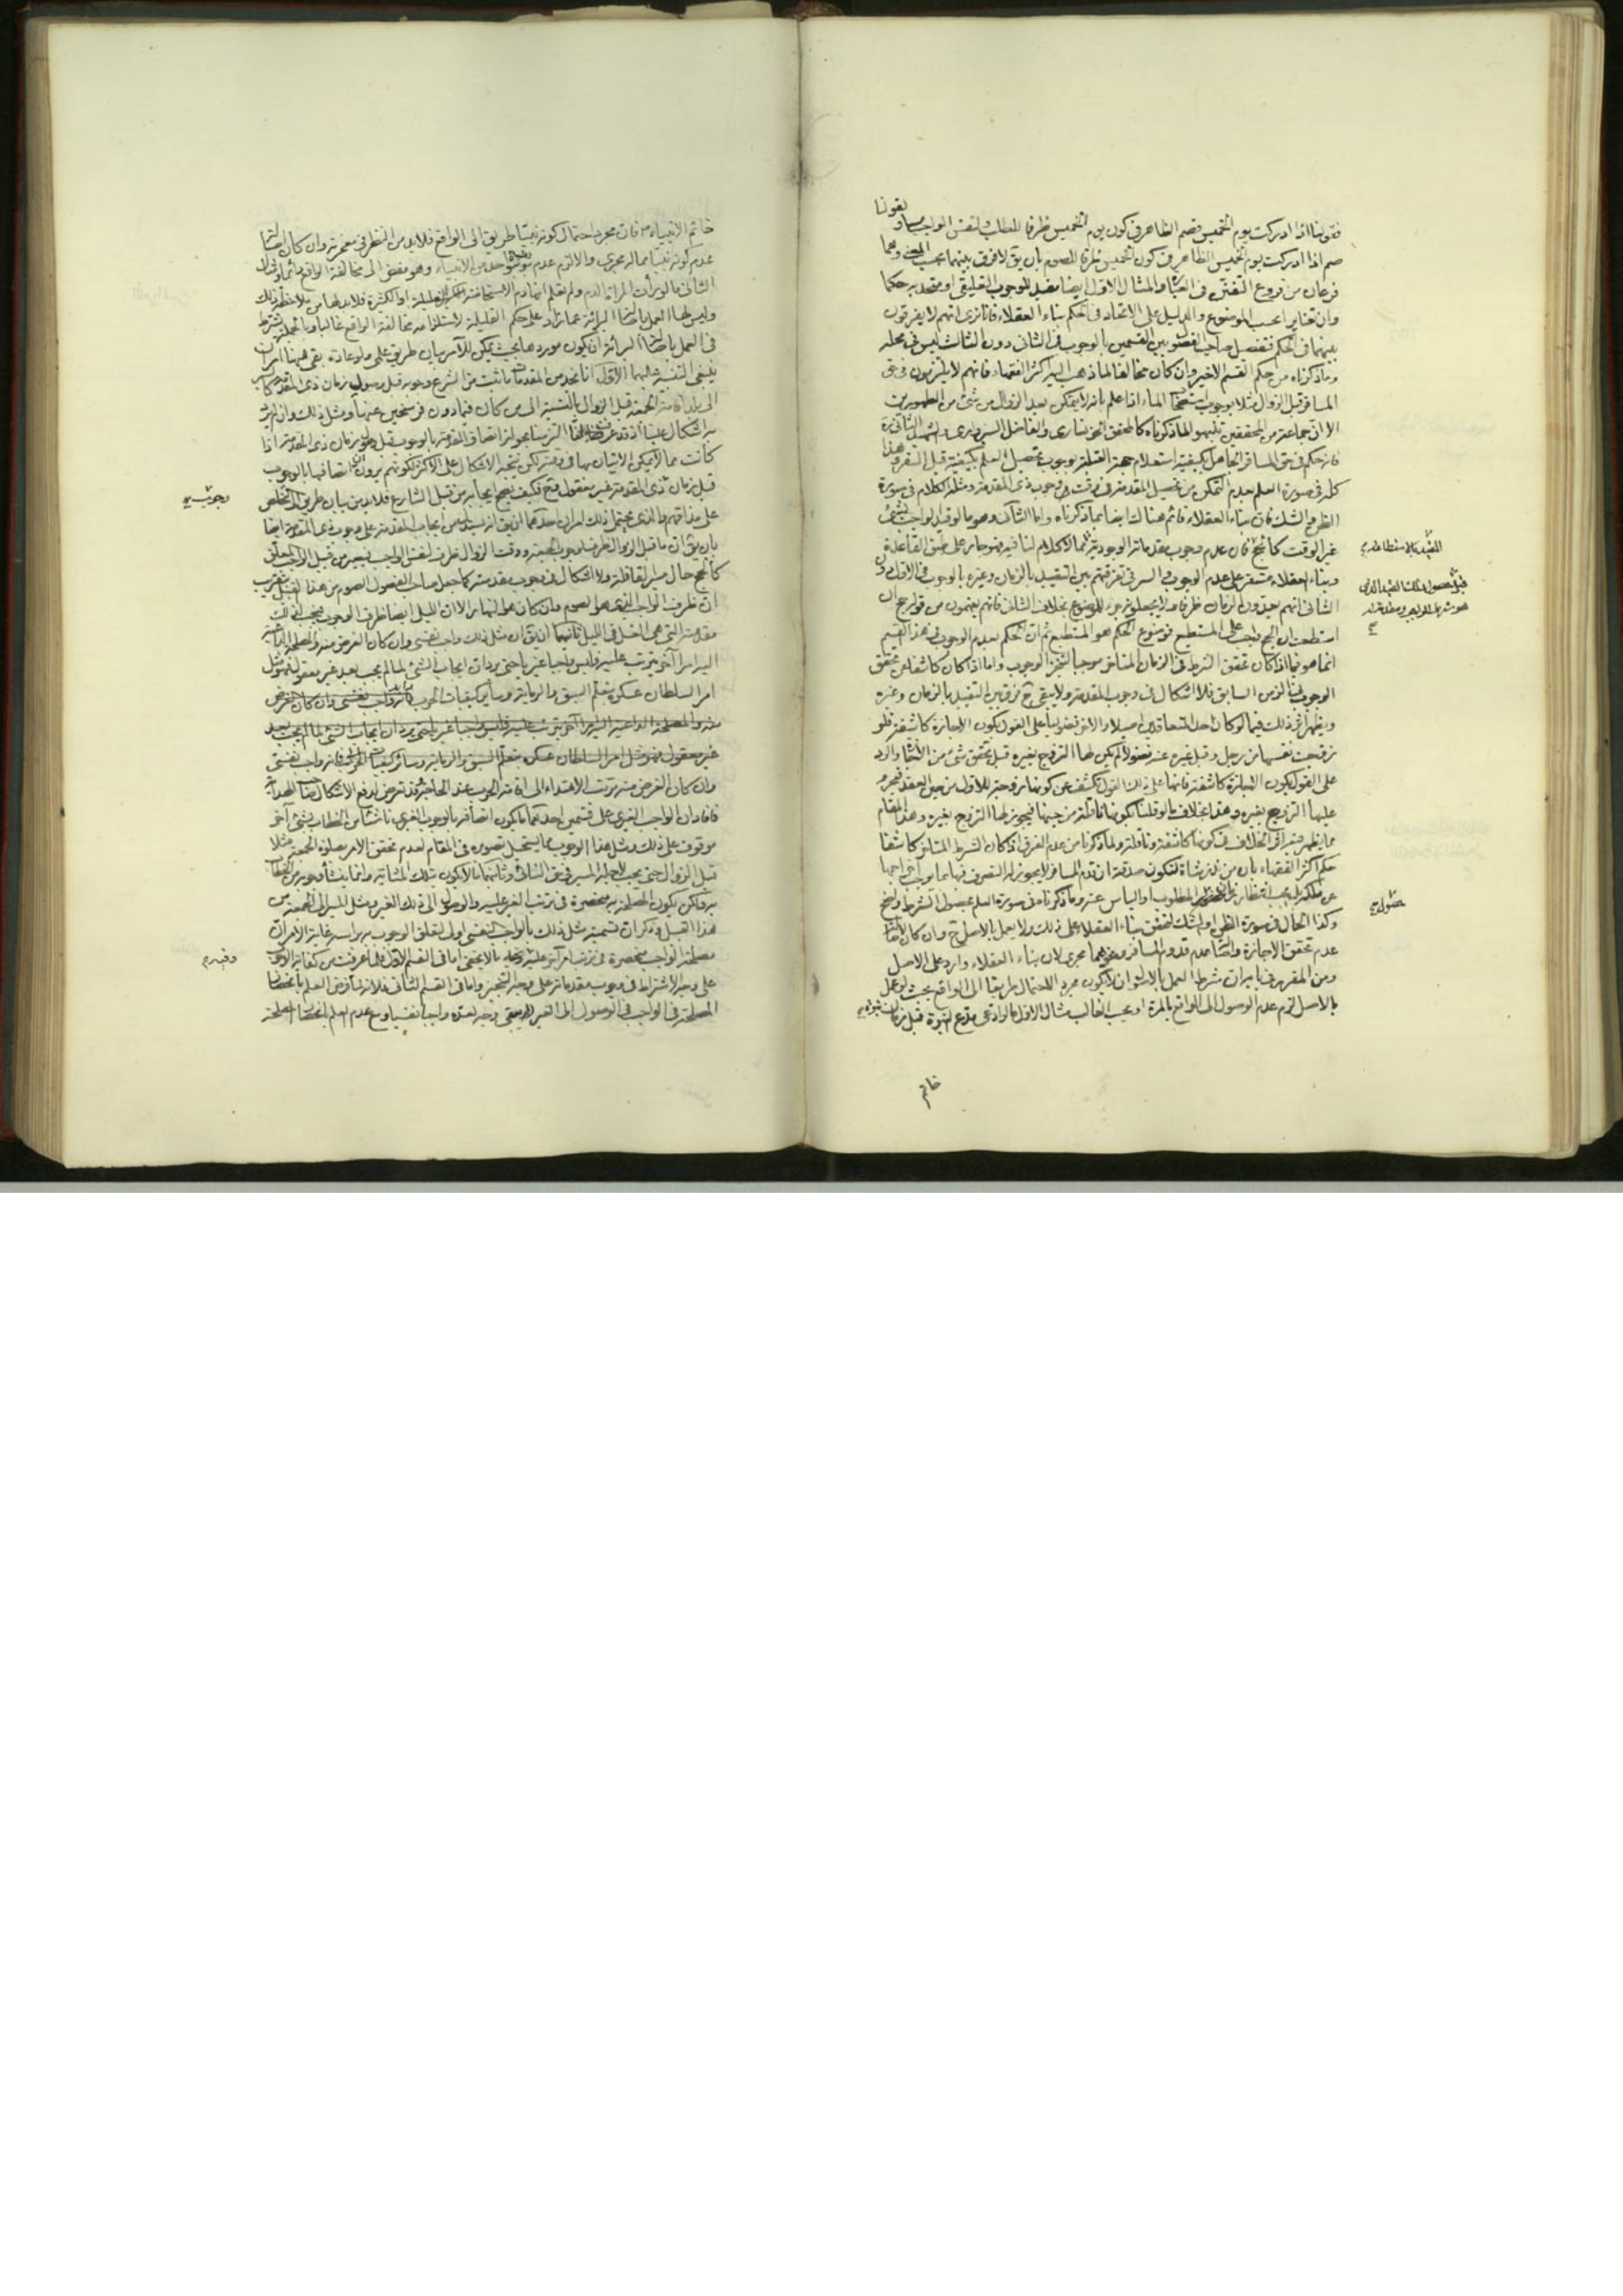 بقولنا
فقولنا اذا ادركت يوم الخميس فصم الظاهر في كون يوم الخميس ظرفا للطلب ولنفس الواجب مساو
صم اذا ادركت يوم الخميس الظاهر في كون الخميس ظرفا للصوم بان يق لا فرق بينهما بحسب المعنى وهما
فرعان من فروع التفنن في العبارة والمثال الاول ايضا مفيد للوجوب التعليقي او متحد به حكما
وان تغاير بحسب الموضوع والدليل على الاتحاد في الحكم بناء العقلاء فانا نرى انهم لا يفرقون
بينهما في الحكم فتفصيل صاحب الفصول بين القسمين بالوجوب في الثاني دون الثالث ليس في محله
وما ذكرناه من حكم القسم الاخير وان كان مخالفا لما ذهب اليه اكثر الفقهاء فانهم لا يلتزمون في حق
المسافر قبل الزوال مثلا بوجوب الماء اذا علم بانه لا يتمكن بعد الزوال من شئ من الطهورين
الا ان جماعة من المحققين تنبهوا لما ذكرناه كالمحقق الخونساري والفاضل السبزواري والشهيد الثاني ره
فانه حكم في حق المسافر الجاهل بكيفية استعلام جهة القبلة بوجوب تحصيل العلم بكيفيته قبل السفر وهذا
كله في صورة العلم بعدم التمكن من تحصيل المقدمة في وقت وجوب ذي المقدمة ومثله الكلام في صورة
الظن مع الشك فان بناء العقلاء قائم هناك ايضا بما ذكرناه واما الثاني وهو ما لو قيد الواجب بشئ
غير الوقت كالحج فان عدم وجوب مقدماته الوجودية مما لا كلام لنا فيه وهو جار على طبق القاعدة
وبناء العقلاء مستقر على عدم الوجوب والسر في تفرقتهم بين التقييد بالزمان وغيره بالوجوب في الاول دون
الثاني انهم يعدون الزمان ظرفا ولا يجعلونه جزء للموضوع بخلاف الثاني فانهم يفهمون من قولهم ان
استطعت ان الحج واجب على المستطيع فموضوع الحكم هو المستطيع ثم ان الحكم بعدم الوجوب في هذا القسم
انما هو فيما اذا كان تحقق الشرط في الزمان المتاخر موجبا لتنجز الوجوب واما اذا كان كاشفا عن تحقق
الوجوب في الزمن السابق فلا اشكال في وجوب المقدمة ولا يبقى ح فرق بين التقييد بالزمان وغيره
ويظهر اثر ذلك فيما لو كان احد المتعاقدين اصيلا والاخر فضوليا على القول بكون الاجازة كاشفة فلو
زوجت نفسها من رجل وقبل غيره عنه فضولا لم يكن لها التزوج بغيره قبل تحقق شئ من الاجازة والرد
على القول بكون الاجازة كاشفة فانها على ذلك القول تكشف عن كونها زوجة للاول من حين العقد فيحرم
عليها التزويج بغيره وهذا بخلاف ما لو قلنا بكونها ناقلة من حينها فيجوز لها التزوج بغيره وهذا المقام
مما يظهر فيه اثر الخلاف في كونها كاشفة وناقلة ولما ذكرنا من عدم الفرق اذا كان الشرط المتاخر كاشفا
حكم اكثر الفقهاء بان من نذر شاة لتكون صدقة ان قدم المسافر لا يجوز له التصرف فيها بما يوجب اخراجها
عن ملكه بل يجب انتظار زمان حضور المطلوب او الياس عنه وما ذكرناه في صورة العلم بحصول الشرط واضح
وكذا الحال في صورة الظن او الشك لتحقق بناء العقلاء على ذلك ولا يعمل بالاصل ح وان كان
عدم تحقق الاجازة واصالة عدم قدوم المسافر وغيرهما مجرى لان بناء العقلاء وارد على الاصل
ومن المقرر في بابه ان شرط العمل بالاصول ان لا يكون مجرد الاحتمال طريقا الى الواقع بحيث لو عمل
بالاصل لزم عدم الوصول الى الواقع بالمرة او بحسب الغالب مثال الاول ما لو ادعى مدع النبوة قبل زمان
خاتم
المقيد بالاستطاعة
قبل حصول ذلك القيد الذي
حصول
خاتم الانبياء ص فان مجرد احتمال كونه نبيا طريق الى الواقع فلا بد من النظر في معجزته وان كان
عدم كونه نبيا مما له مجرى والا لزم عدم واحد من الانبياء وهو مفض الى مخالفة الواقع دائما ومثال
الثاني ما لو رات المراة الدم ولم تعلم انه دم الاستحاضة القليلة او الكثيرة فلا بد لها من ملاحظة ذلك
وليس لها العمل باصالة البرائة عما زاد على حكم القليلة لاستلزامه مخالفة الواقع غالبا وبالجملة يشترط
في العمل باصالة البرائة ان يكون موردها بحيث يمكن للآمر بيان طريق علمي ولو عادة بقي ههنا امران
ينبغي التنبيه عليهما الاول انا نجد من المقدمات ما ثبت من الشرع وجوبه قبل زمان ذي المقدمة
الى بلد اقامة الجمعة قبل الزوال بالنسبة الى من كان فيما دون فرسخين عنها ومثل ذلك وان لم يرد
به اشكال علينا التزمنا بجواز اتصاف المقدمة بالوجوب قبل زمان ذي المقدمة اذا
كانت مما لا يمكن الاتيان بها في وقته لكن يتجه الاشكال على الاكثر لكونهم يرون اتصافها بالوجوب
قبل زمان ذي المقدمة غير معقول فح فكيف يصح ايجابه من قبل الشارع فلا بد من بيان طريق التخلص
على مذاقهم والذي يحتمل ذلك امران احدهما ان يق انه يستدل من ايجاب المقدمة على وجوب ذي المقدمة ايضا
بان يق ان ما قبل الزوال ظرف لوجوب الجمعة ووقت الزوال ظرف لنفس الواجب فيصير من قبيل الواجب المعلق
كالحج حال سير القافلة ولا اشكال في وجوب مقدمته كما جعل صاحب الفصول الصوم من هذا القبيل
ان ظرف الواجب الذي هو الصوم وان كان هو النهار الا ان الليل ايضا ظرف الوجوب فيجب لذلك
مقدمته التي هي الغسل في الليل ثانيهما ان يق ان مثل ذلك واجب نفسي وان كان الغرض منه والمصلحة الداعية
اليه امرا آخر يترتب عليه فليس واجبا غيريا حتى يرد ان ايجاب الشئ لما لم يجب بعد غير معقول فهو مثل
امر السلطان عسكره بتعلم السبق والرماية وسائر كيفيات الحرب فانه واجب نفسي وان كان الغرض
منه والمصلحة الداعية اليه امرا آخر يترتب عليه فليس واجبا غيريا حتى يرد ان ايجاب الشئ لما لم يجب بعد
غير معقول فهو مثل امر السلطان عسكره بتعلم السبق والرماية وسائر كيفيات الحرب فانه واجب نفسي
وان كان الغرض منه ترتب الاهتداء الى اقامة الحرب عند الحاجة وقد تعرض لدفع الاشكال صاحب الهداية
فافاد ان الواجب الغيري على قسمين احدهما ما يكون اتصافه بالوجوب الغيري ناشئا من الخطاب بشئ آخر
موقوف على ذلك ومثل هذا الوجوب مما يستحيل تصوره في المقام لعدم تحقق الامر بصلوة الجمعة مثلا
قبل الزوال حتى يجب لاجله السير في حق النائي وثانيهما ما لا يكون بتلك المثابة وانما ينشأ وجوبه من الخطاب
به ولكن يكون المصلحة به منحصرة في ترتب الغير عليه والوصول الى ذلك الغير ومثل السير الى الجمعة من
هذا القبيل وذكر ان تسمية مثل ذلك بالواجب النفسي اولى لتعلق الوجوب به براسه غاية الامر ان
مصلحة الواجب منحصرة في ترتب امر آخر عليه اما في القسم الاول فلما عرفت من كفاية الامر
على وجه الاشتراط في وجوب مقدماته على وجه التنجيز واما في القسم الثاني فلانه لا فرق العلم بانحصار
المصلحة في الواجب في الوصول الى الغير لا يبقى وجه لعده واجبا نفسيا ومع عدم العلم بانحصار المصلحة
وجوب
وفيه